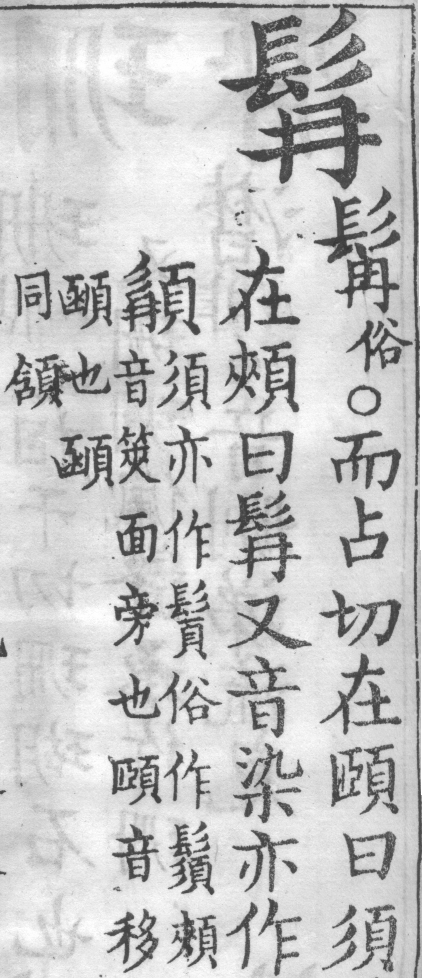 髯
髥俗○而占切在頤曰須
在頰曰髯又音染亦作
須亦作䰅俗作鬚頰
音筴面旁也頤音移
顄也顄
同頷